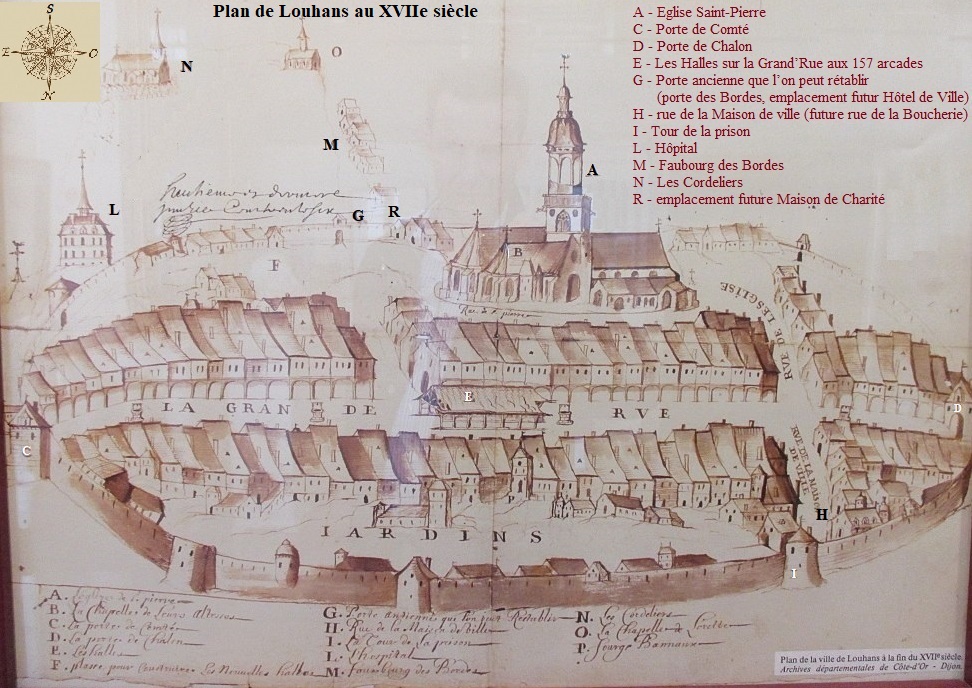 Plan de Louhans au XVIIe siècle
S
E
O
N
A - Eglise Saint-Pierre
C - Porte de Comté
D - Porte de Chalon
E - Les Halles sur la Grand'Rue aux 157 arcades
G - Porte ancienne que l'on peut rétablir
(porte des Bordes, emplacement futur Hôtel de Ville)
H - rue de la Maison de ville (future rue de la Boucherie)
I - Tour de la prison
L - Hôpital
M - Faubourg des Bordes
N - Les Cordeliers
R - emplacement future Maison de Charité
N
O
M
A
L
G
R
B
F
Rue de S. pierre
RVE DE LESGLISE
E
LA GRAN DE RVE
D
C
RVE DE LA MAISON DE VILLE
P
H
IARDINS
I
A. Leglise de St pierre
B. La Chapelle de
C. La porte de Comté
D. La porte de Chalon
E. Les halles
F. place pour Construire Les Nouvelles halles
G. Porte ancienne qui lon peut Restablir
H. Rue de la Maison de ville
I. La Tour de la prison
L. L'hospital
M. Fauxbourg des Bordes
N. Les Cordeliers
O. La Chapelle de Lorette
P.
Plan de la ville de Louhans à la fin du XVIIe siècle.
Archives départementales de Côte-d'Or - Dijon.